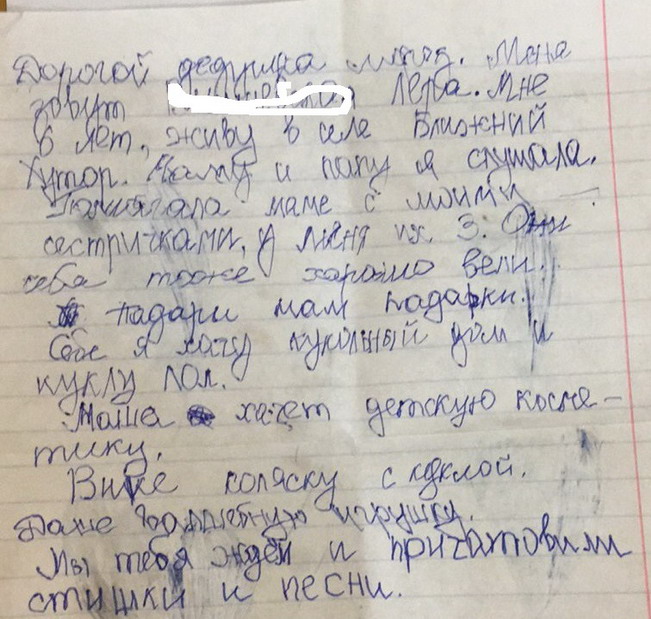 Дорогой дедушка мароз. Меня
зовут Лера. Мне
6 лет, живу в селе Ближний
Хутор. Маму и папу я слушала.
Памагала маме с моими
сестричками, у меня их 3. Они
себя тоже харошо вели.
падари нам падарки.
Себе я хачу кукольный дом и
куклу лол.
Маша хачет детскую косме-
тику.
Вике коляску с куклой.
Даше валшебную игрушку.
Мы тебя ждем и пригатовили
стишки и песни.